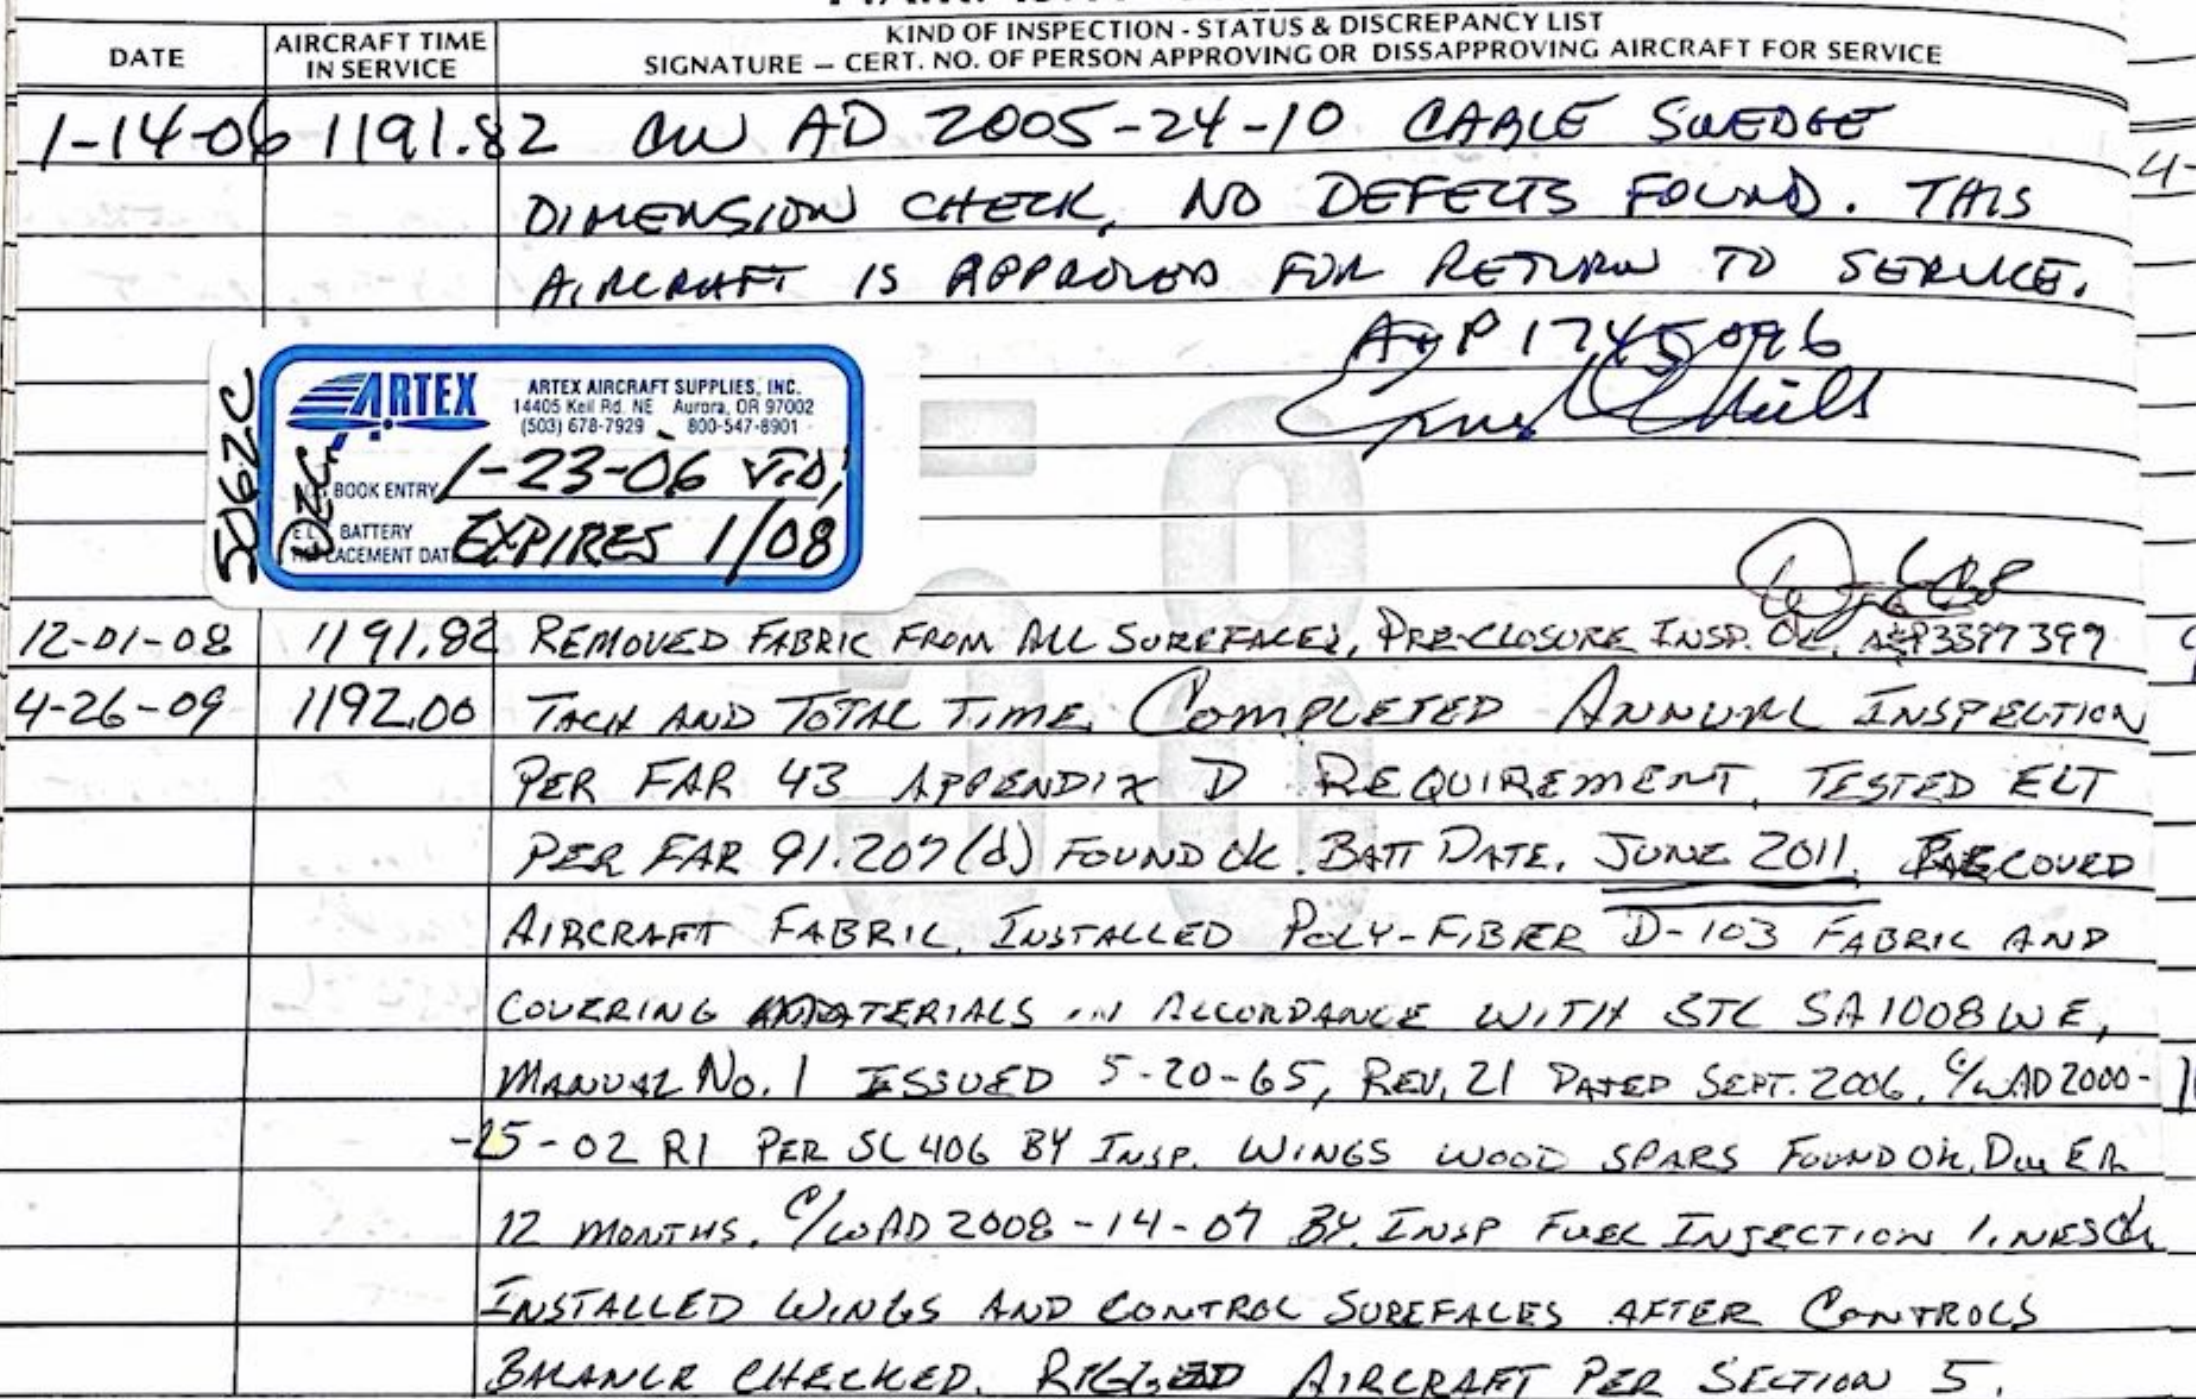 KIND OF INSPECTION - STATUS & DISCREPANCY LIST
DATE AIRCRAFT TIME IN SERVICE SIGNATURE — CERT. NO. OF PERSON APPROVING OR DISSAPPROVING AIRCRAFT FOR SERVICE
1-14-06 1191.82 CW AD 2005-24-10 CABLE SWEDGE
DIMENSION CHECK, NO DEFECTS FOUND. THIS
AIRCRAFT IS APPROVED FOR RETURN TO SERVICE.
A&P 1745096
5D62C
ARTEX
ARTEX AIRCRAFT SUPPLIES, INC.
14405 Keil Rd. NE Aurora, OR 97002
(503) 678-7929 800-547-8901
DEC
BOOK ENTRY 1-23-06
BATTERY
REPLACEMENT DATE EXPIRES 1/08
12-01-08 1191.82 REMOVED FABRIC FROM ALL SUREFACES, PRE-CLOSURE INSP. OK, A&P3397399
4-26-09 1192.00 TACH AND TOTAL TIME. COMPLETED ANNUAL INSPECTION
PER FAR 43 APPENDIX D REQUIREMENT, TESTED ELT
PER FAR 91.207(d) FOUND OK. BATT DATE, JUNE 2011. RECOVRD
AIRCRAFT FABRIC, INSTALLED POLY-FIBER D-103 FABRIC AND
COVERING MATERIALS IN ACCORDANCE WITH STC SA1008WE,
MANUAL No. 1 ISSUED 5-20-65, REV, 21 DATED SEPT. 2006. C/W AD 2000-
-25-02 R1 PER SL 406 BY INSP. WINGS WOOD SPARS FOUND OK, Due ER
12 MONTHS. C/W AD 2008-14-07 BY INSP FUEL INJECTION LINES OK
INSTALLED WINGS AND CONTROL SUREFACES AFTER CONTROLS
BALANCE CHECKED. RIGGED AIRCRAFT PER SECTION 5.